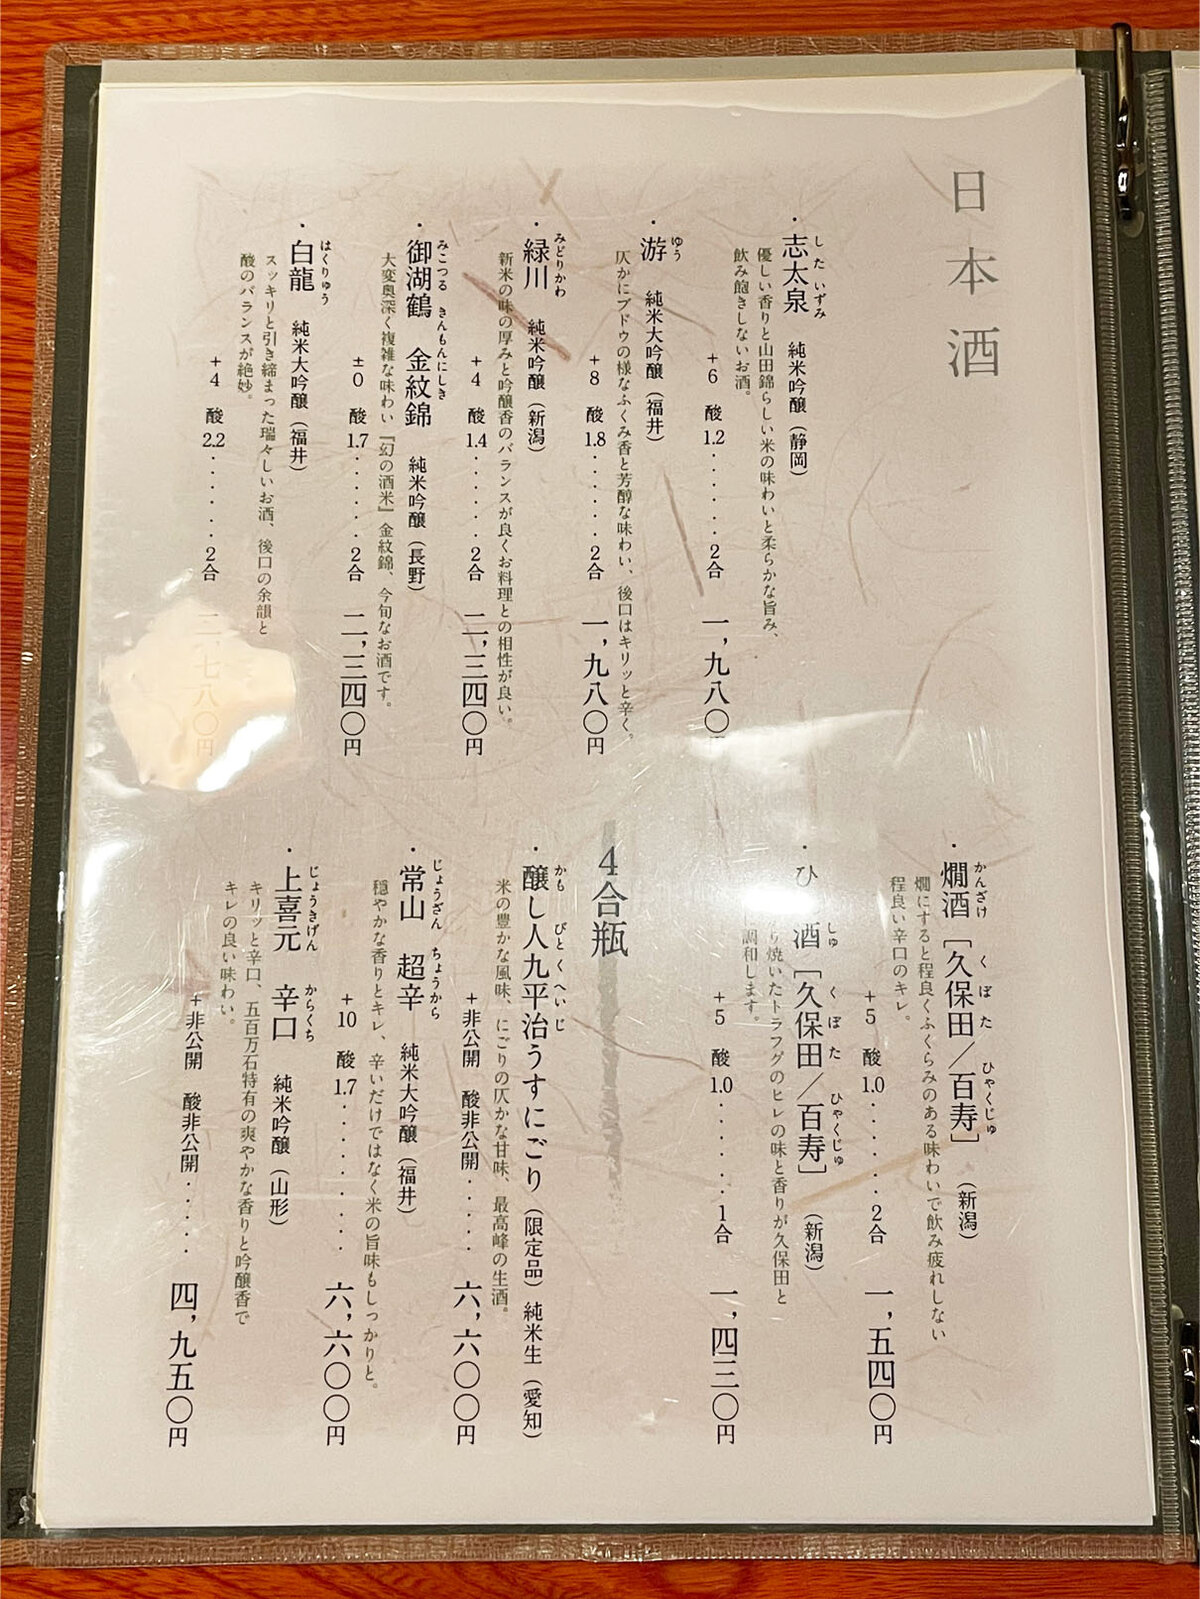 日本酒
・志太泉 純米吟醸(静岡)
したいずみ
優しい香りと山田錦らしい米の味わいと柔らかな旨み、
飲み飽きしないお酒。
+6 酸1.2・・・・・・2合 一,九八〇
・游 純米大吟醸(福井)
ゆう
仄かにブドウの様なふくみ香と芳醇な味わい、後口はキリッと辛く。
+8 酸1.8・・・・・・2合 一,九八〇円
・緑川 純米吟醸(新潟)
みどりかわ
新米の味の厚みと吟醸香のバランスが良くお料理との相性が良い。
+4 酸1.4・・・・・・2合 二,三四〇円
・御湖鶴 金紋錦 純米吟醸(長野)
みこつる きんもんにしき
大変奥深く複雑な味わい『幻の酒米』金紋錦、今旬なお酒です。
±0 酸1.7・・・・・・2合 二,三四〇円
・白龍 純米大吟醸(福井)
はくりゅう
スッキリと引き締まった瑞々しいお酒、後口の余韻と
酸のバランスが絶妙。
+4 酸2.2・・・・・・2合 二,七八〇円
・燗酒[久保田/百寿](新潟)
かんざけ くぼた ひゃくじゅ
燗にすると程良くふくらみのある味わいで飲み疲れしない
程良い辛口のキレ。
+5 酸1.0・・・・・・2合 一,五四〇円
・ひ 酒[久保田/百寿](新潟)
しゅ くぼた ひゃくじゅ
り焼いたトラフグのヒレの味と香りが久保田と
に調和します。
+5 酸1.0・・・・・・1合 一,四三〇円
4合瓶
・醸し人九平治うすにごり(限定品)純米生(愛知)
かも びとくへいじ
米の豊かな風味、にごりの仄かな甘味、最高峰の生酒。
+非公開 酸非公開・・・・・ 六,六〇〇円
・常山 超辛 純米大吟醸(福井)
じょうざん ちょうから
穏やかな香りとキレ、辛いだけではなく米の旨味もしっかりと。
+10 酸1.7・・・・・・・・ 六,六〇〇円
・上喜元 辛口 純米吟醸(山形)
じょうきげん からくち
キリッと辛口、五百万石特有の爽やかな香りと吟醸香で
キレの良い味わい。
+非公開 酸非公開・・・・・ 四,九五〇円